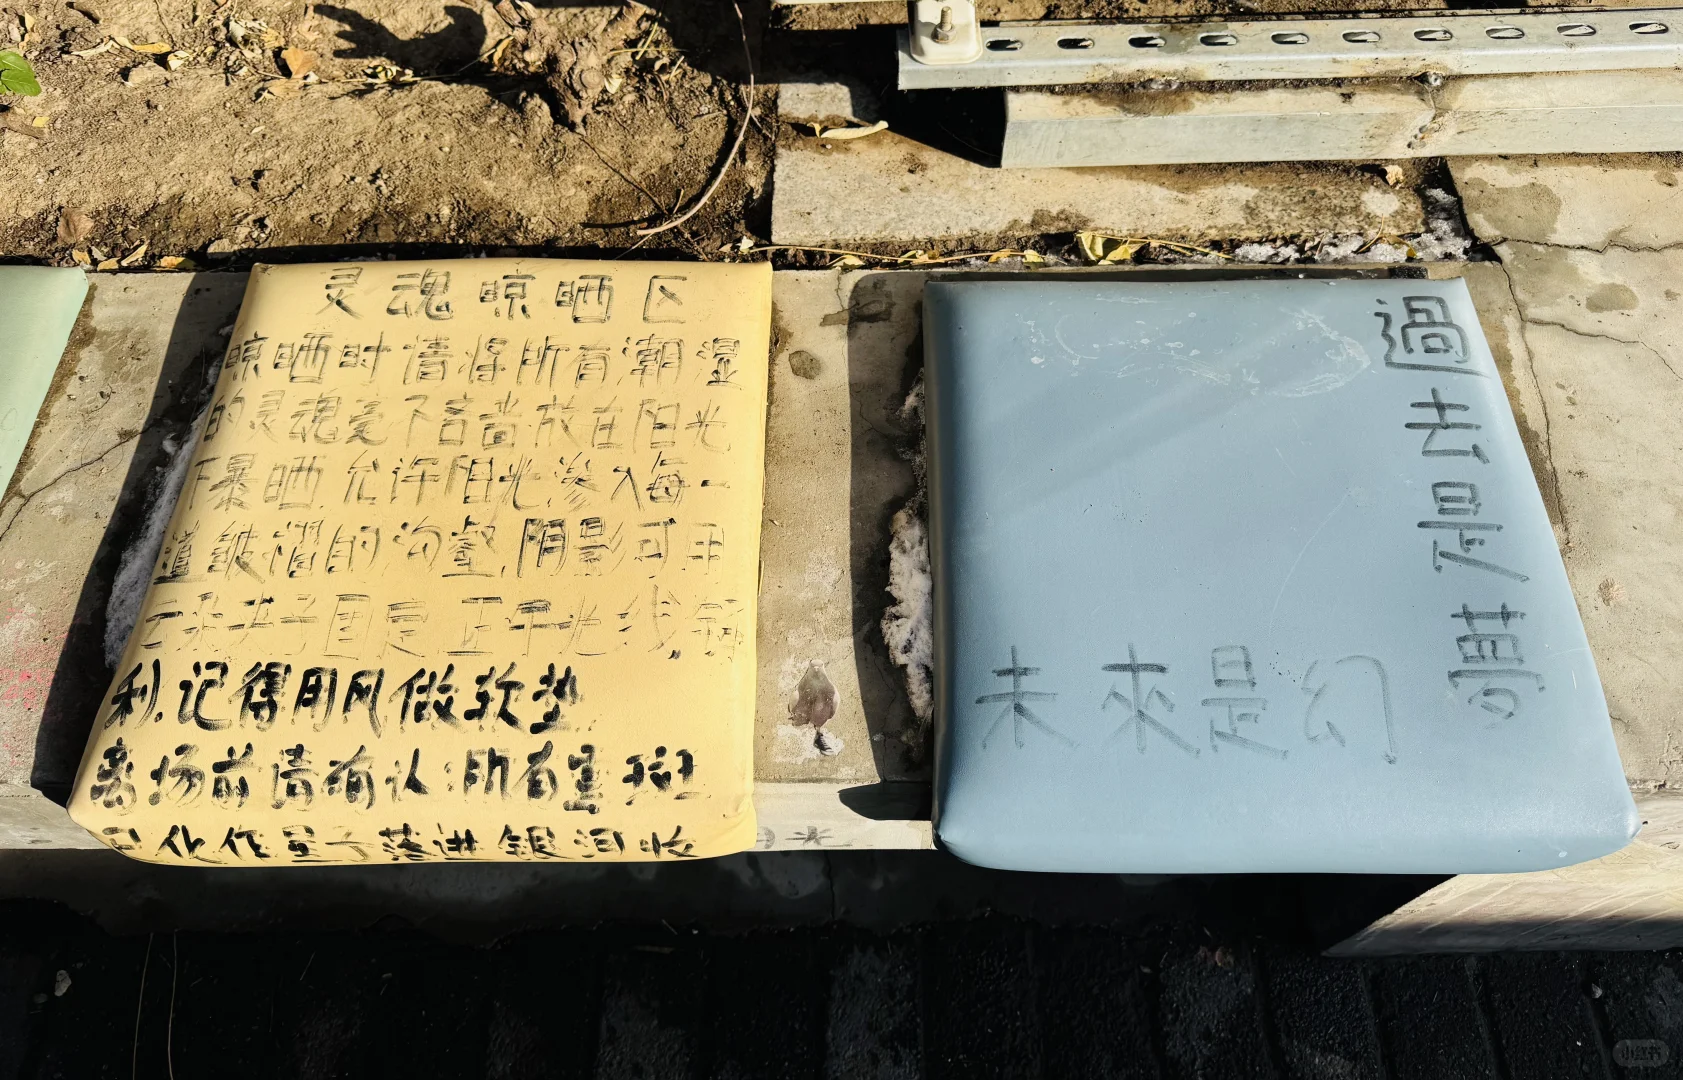 灵魂晾晒区
晾晒时请将所有潮湿
的灵魂毫不吝啬放在阳光
下暴晒.允许阳光渗入每一
道皱褶的沟壑.阴影可用
云朵夹子固定.正午光线
利.记得用风做软垫
离场前请确认:所有霉斑
已化作星子落进银河收
過去是夢
未來是幻
小红书